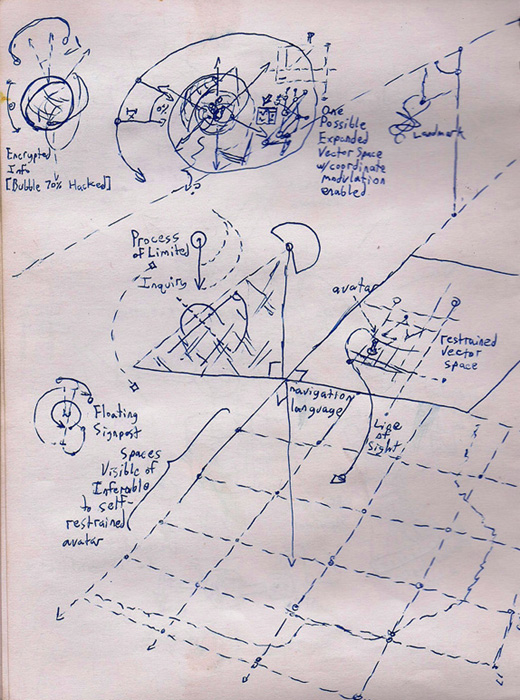 Encrypted
Info
[Bubble 70% Hacked]
0%
ME
One
Possible
Expanded
Vector Space
w/coordinate
modulation
enabled
Landmark
Process
of Limited
Inquiry
avatar
restrained
vector
space
navigation
language
Line
of
Sight
Floating
Signpost
Spaces
Visible of
Inferable
to self-
restrained
avatar